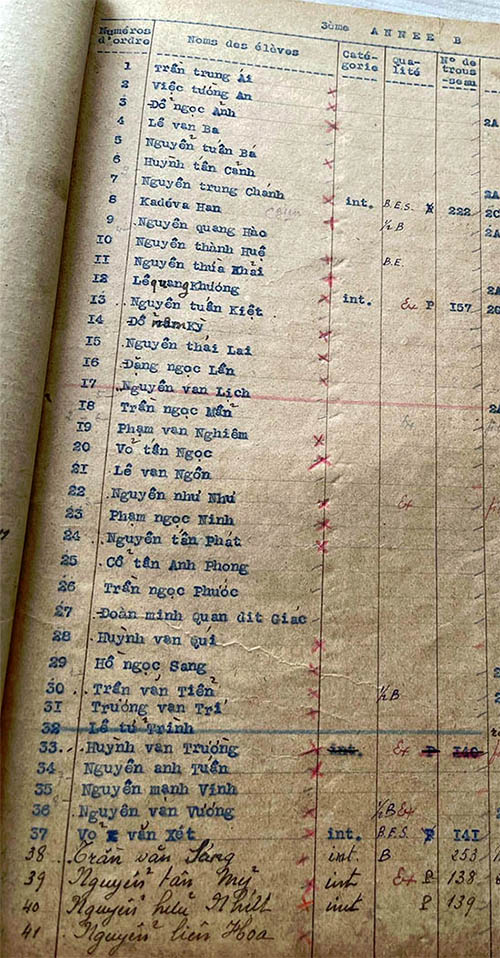 3ème ANNEE B
Numéros d'ordre Noms des élèves Caté-gorie Qua-lité N° de trous-seau
1 Trần trung Ái
2 Việc tường An
3 Đỗ ngọc Ảnh 2A
4 Lê văn Ba
5 Nguyễn tuấn Bá
6 Huỳnh tấn Cảnh
7 Nguyễn trung Chánh
8 Kadéva Han int. B.E.S. P 222 2C
9 Nguyễn quang Hào ½ B 2A
10 Nguyễn thành Huê
11 Nguyễn thừa Khải B.E.
12 Lê quang Khương 2A
13 Nguyễn tuấn Kiệt int. Ex P 157
14 Đỗ Kỳ
15 Nguyễn thái Lai
16 Đặng ngọc Lân
17 Nguyễn văn Lịch
18 Trần ngọc Mẫn
19 Phạm văn Nghiêm
20 Võ tấn Ngọc
21 Lê văn Ngôn
22 Nguyễn như Như Ex
23 Phạm ngọc Ninh
24 Nguyễn tấn Phát
25 Cổ tấn Anh Phong
26 Trần ngọc Phước
27 Đoàn minh Quan dit Giác
28 Huỳnh văn Qui
29 Hồ ngọc Sang
30 Trần văn Tiển ½ B
31 Trương văn Trí
32 Lê tử Trình
33 Huỳnh văn Trượng int. Ex P 140
34 Nguyễn anh Tuấn
35 Nguyễn mạnh Vinh
36 Nguyễn văn Vương ½ B Ex
37 Võ văn Xét int. B.E.S. P 141
38 Trần văn Sáng int B 253
39 Nguyễn tấn Mỹ int Ex P 138
40 Nguyễn hữu Nhứt int P 139
41 Nguyễn liên Hoa